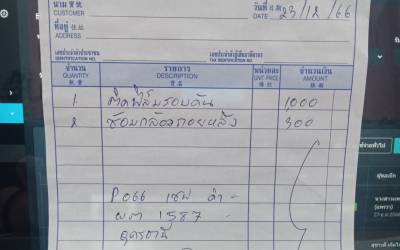 นาม 客戶
CUSTOMER
วันที่ 日期
DATE 23/12/66
ที่อยู่ 住址
ADDRESS
เลขประจำตัวประชาชน
IDENTIFICATION NO.
เลขประจำตัวผู้เสียภาษีอากร
TAX IDENTIFICATION NO.
จำนวน รายการ หน่วยละ จำนวนเงิน
QUANTITY DESCRIPTION UNIT PRICE AMOUNT
數量 貨名
1 ติดฟิล์มรอบคัน 1,000
2 ซ่อมกล้องถอยหลัง 300
ดำ
1587
อุดรธานี